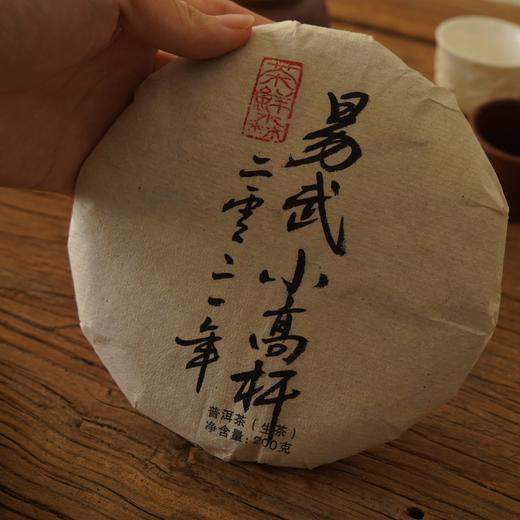 易武小高杆
二零二一年
普洱茶（生茶）
净含量：200克